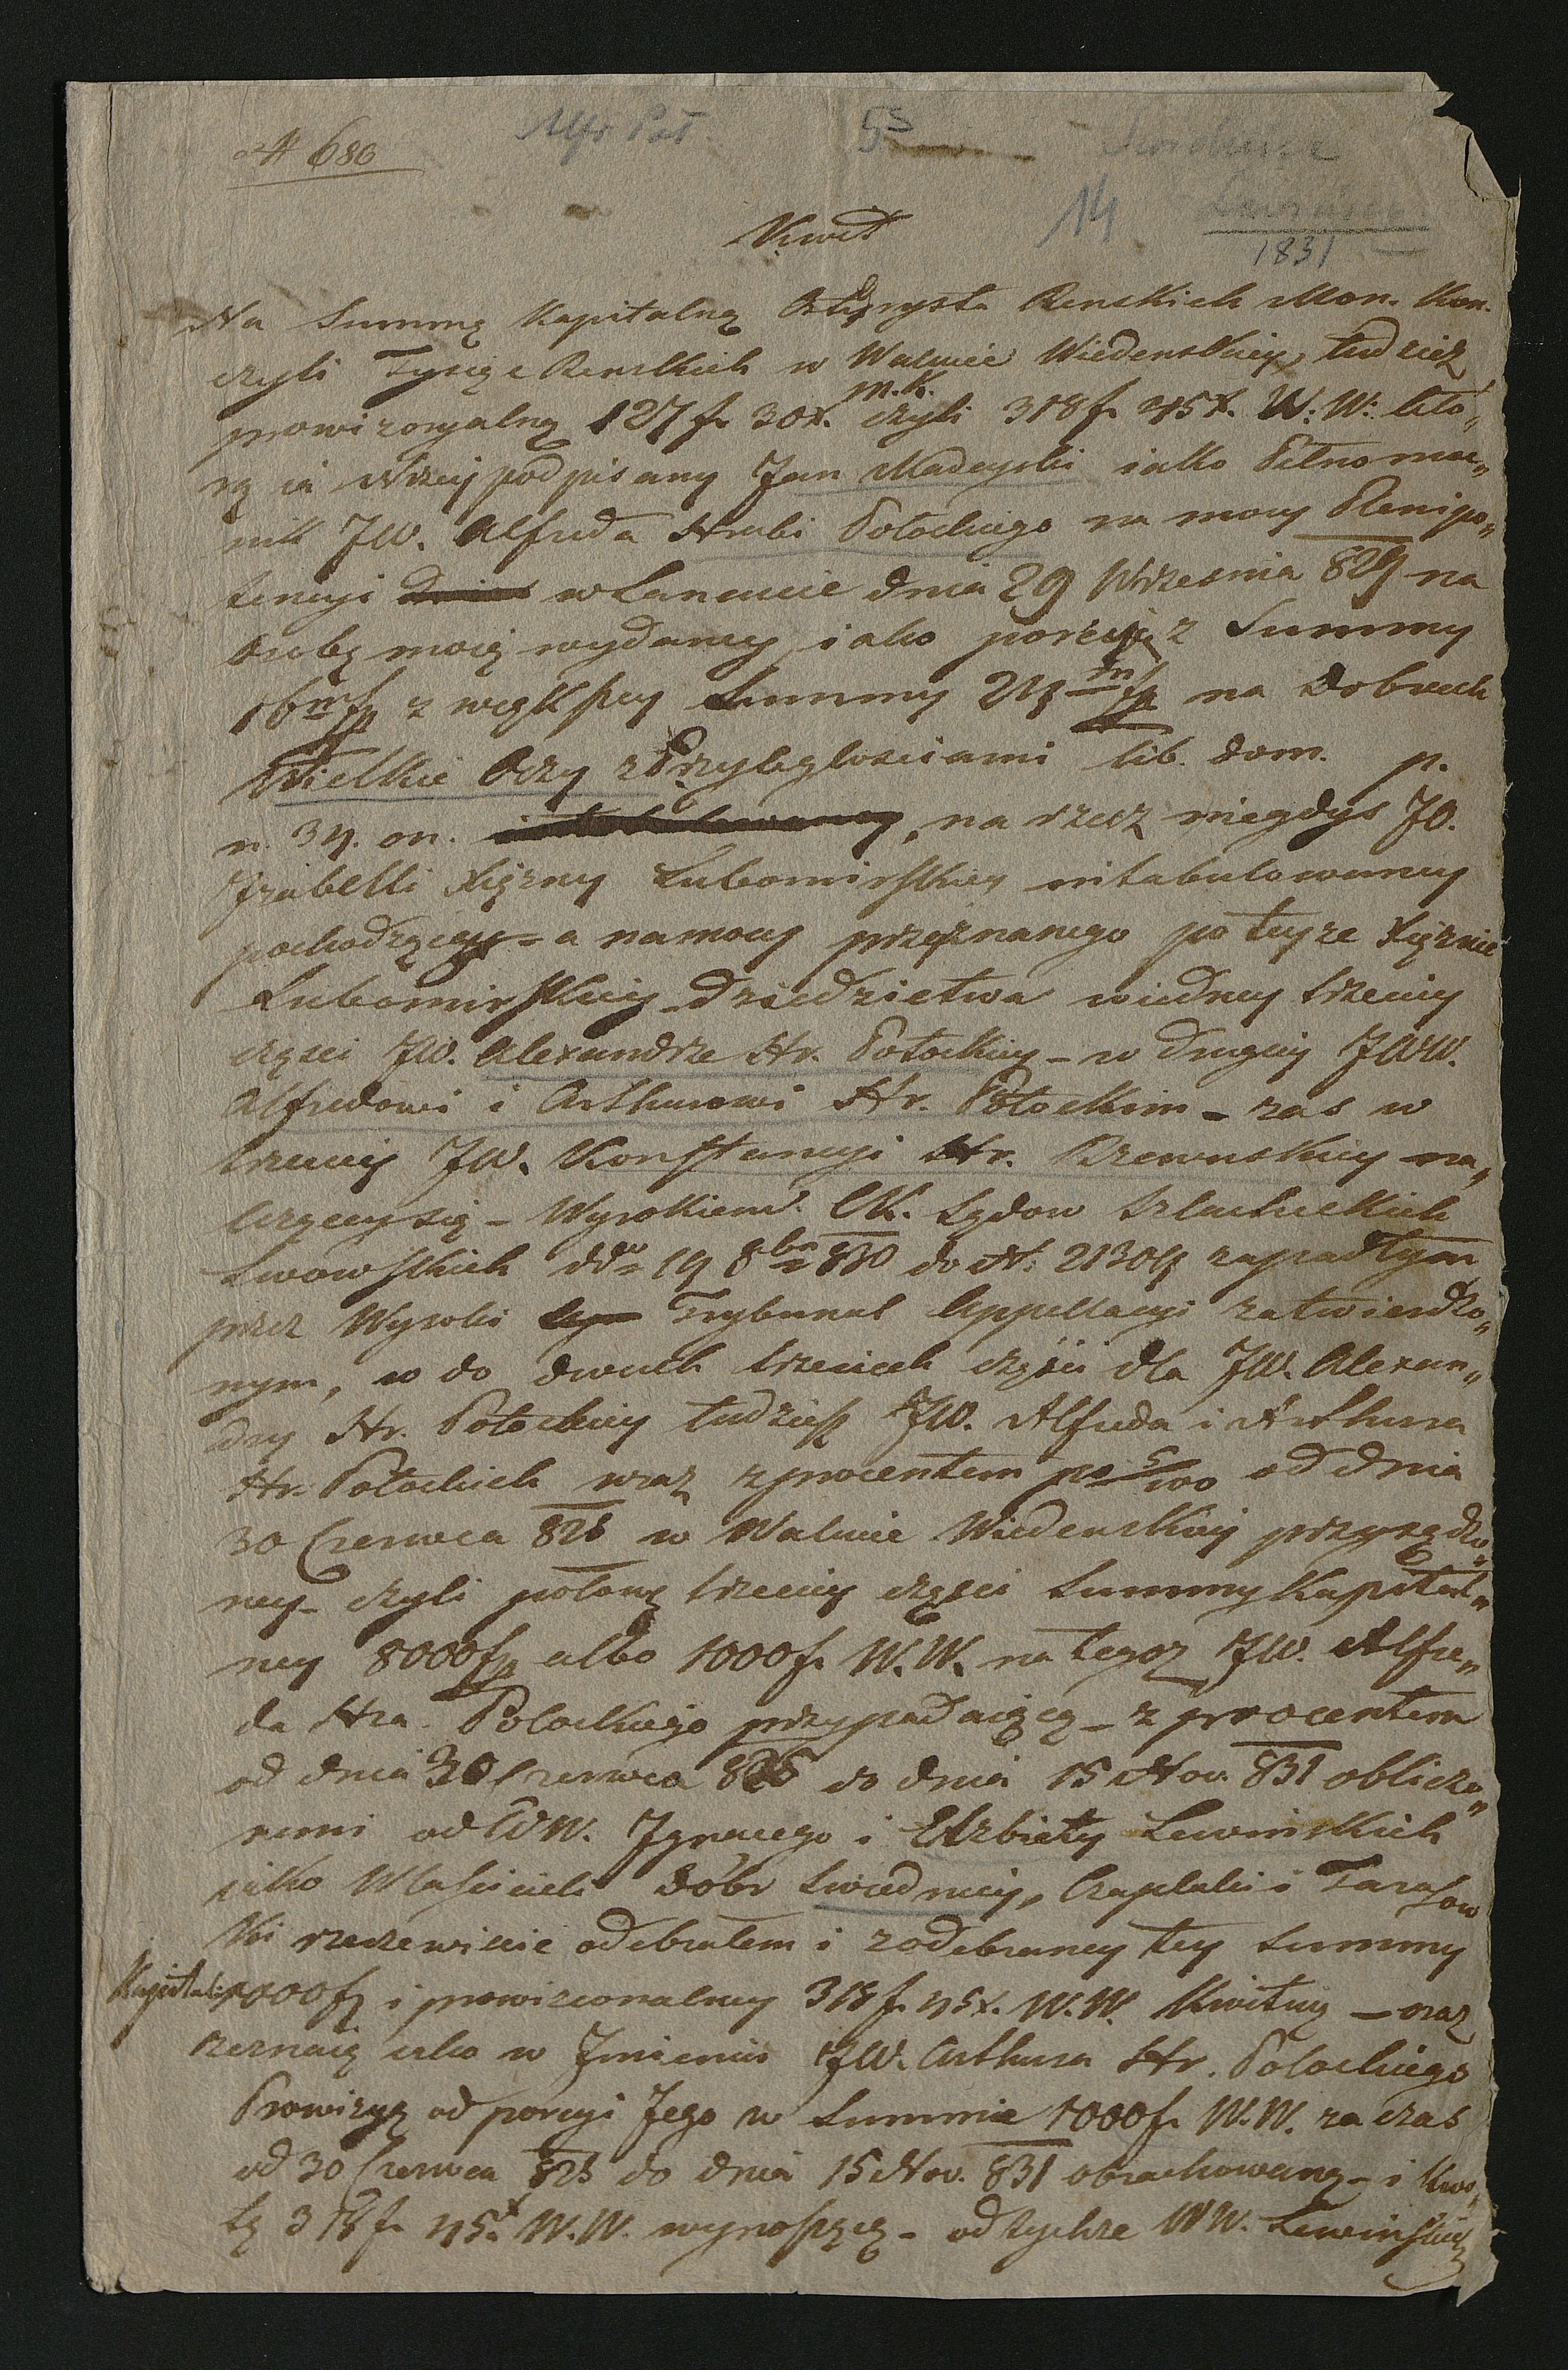 N 686
Alfr Pot.
14
1831
Kwit
Na Summę Kapitalną Czterysta Renskich Mon. Kon.
czyli Tysiąc Renskich w Walucie Wiedenskiey, tudzież
prowizoryalną 127 fr. 30 x. m. k. czyli 318 fr. 45 x. W. W. któ„
rą ia niżej podpisany Jan Madeyski iako Pełnomoc„
nik JW. Alfreda Hrabi Potockiego na mocy Plenipo„
tencyi w Lancucie dnia 29 Września 829 na
Osobę moią wydaney, iako porcyią z Summy
16 m/fp z większey Summy 24 m/fp na Dobrach
Wielkie Oczy z Przyległosciami lib. dom. p.
n. 34. on. na rzecz niegdys JO.
Izabelli Xiężny Lubomirskiey intabulowaney
pochodzącey – a na mocy przyznanego po teyże Xiężnie
Lubomirskiey dziedzictwa w iedney trzeciey
części JW. Alexandrze Hr. Potockiey – w drugiey JWW.
Alfredowi i Arthurowi Hr. Potockim – zas w
trzeciey JW. Konstancyi Hr. Rzewuskiey na„
leżącey się – Wyrokiem CK. Sądow Szlacheckich
Lwowskich 19 8bra 830 do N. 21304 zapadłym
przez Wysoki Trybunał Appellacyi zatwierdzo„
nym, w do dwuch trzecich części dla JW. Alexan„
dry Hr. Potockiey tudzież JW. Alfreda i Arthura
Hr. Potockich wraz z procentem po 5/100 od dnia
30 Czerwca 825 w Walucie Wiedenskiey przysądzo„
ney – czyli połowę trzeciey części Summy Kapital„
ney 8000 fp albo 1000 fr. W. W. na tegoż JW. Alfre„
da Hra. Potockiego przypadaiącą – z procentem
od dnia 30 Czerwca 825 do dnia 15 Nov. 831 obliczo„
nemi od WW. Ignacego i Elżbiety Lewinskich
iako Właścicieli dóbr Swidnicy, Czaplaki i Tarasow
ki rzeczewiscie odebrałem i z odebraney tey Summy
Kapitalney 1000 fr i prowizionalney 318 fr. 45 x. W. W. Kwituię – oraz
zeznaię iako w Imieniu JW. Arthura Hr. Potockiego
Prowizyę od porcyi Jego w Summie 1000 fr. W. W. za czas
od 30 Czerwca 825 do dnia 15 Nov. 831 obrachowaną – i kwo„
tę 318 fr. 45 x. W. W. wynoszącą – od tychże WW. Lewinskich